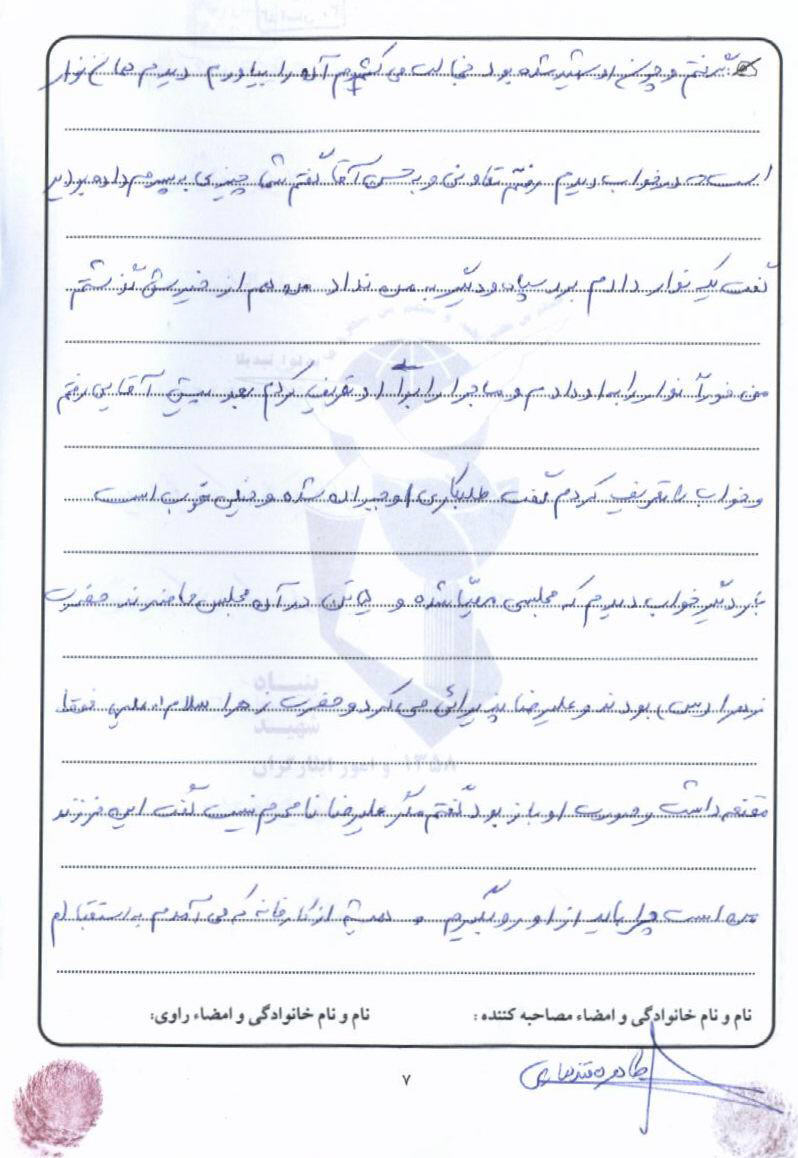 گرفتم و چون او شهید شده بود خجالت می کشیدم آن را بیاورم دیدم همان نوار
است در خواب دیدم رفتم تعاونی و به حسن آقا گفتم شما چیزی به پسرم داده بودید
گفت یک نوار دارم برد سپاه و دیگر به من نداد من هم از خیرش گذشتم
من فوراً نوار را به او دادم و ماجرا را برای او تعریف کردم بعد پیش آقایی رفتم
و خواب را تعریف کردم گفت طلبکاری او جبران شده و خیلی خوب است
بار دیگر خواب دیدم که مجلسی مهیا شده و ۵ تن در آن مجلس حاضرند حضرت
زهرا (س) بودند و علیرضا پذیرائی می کرد و حضرت زهرا سلام ا... علیها فقط
مقنعه داشت و صورت او باز بود گفتم مگر علیرضا نامحرم نیست گفت این فرزند
من است چرا باید از او رو بگیرم و همیشه از کارخانه که می آمدم به استقبالم
نام و نام خانوادگی و امضاء مصاحبه کننده : نام و نام خانوادگی و امضاء راوی:
طاهره
۷
بنیاد
شهید
و امور ایثارگران
۱۳۵۸